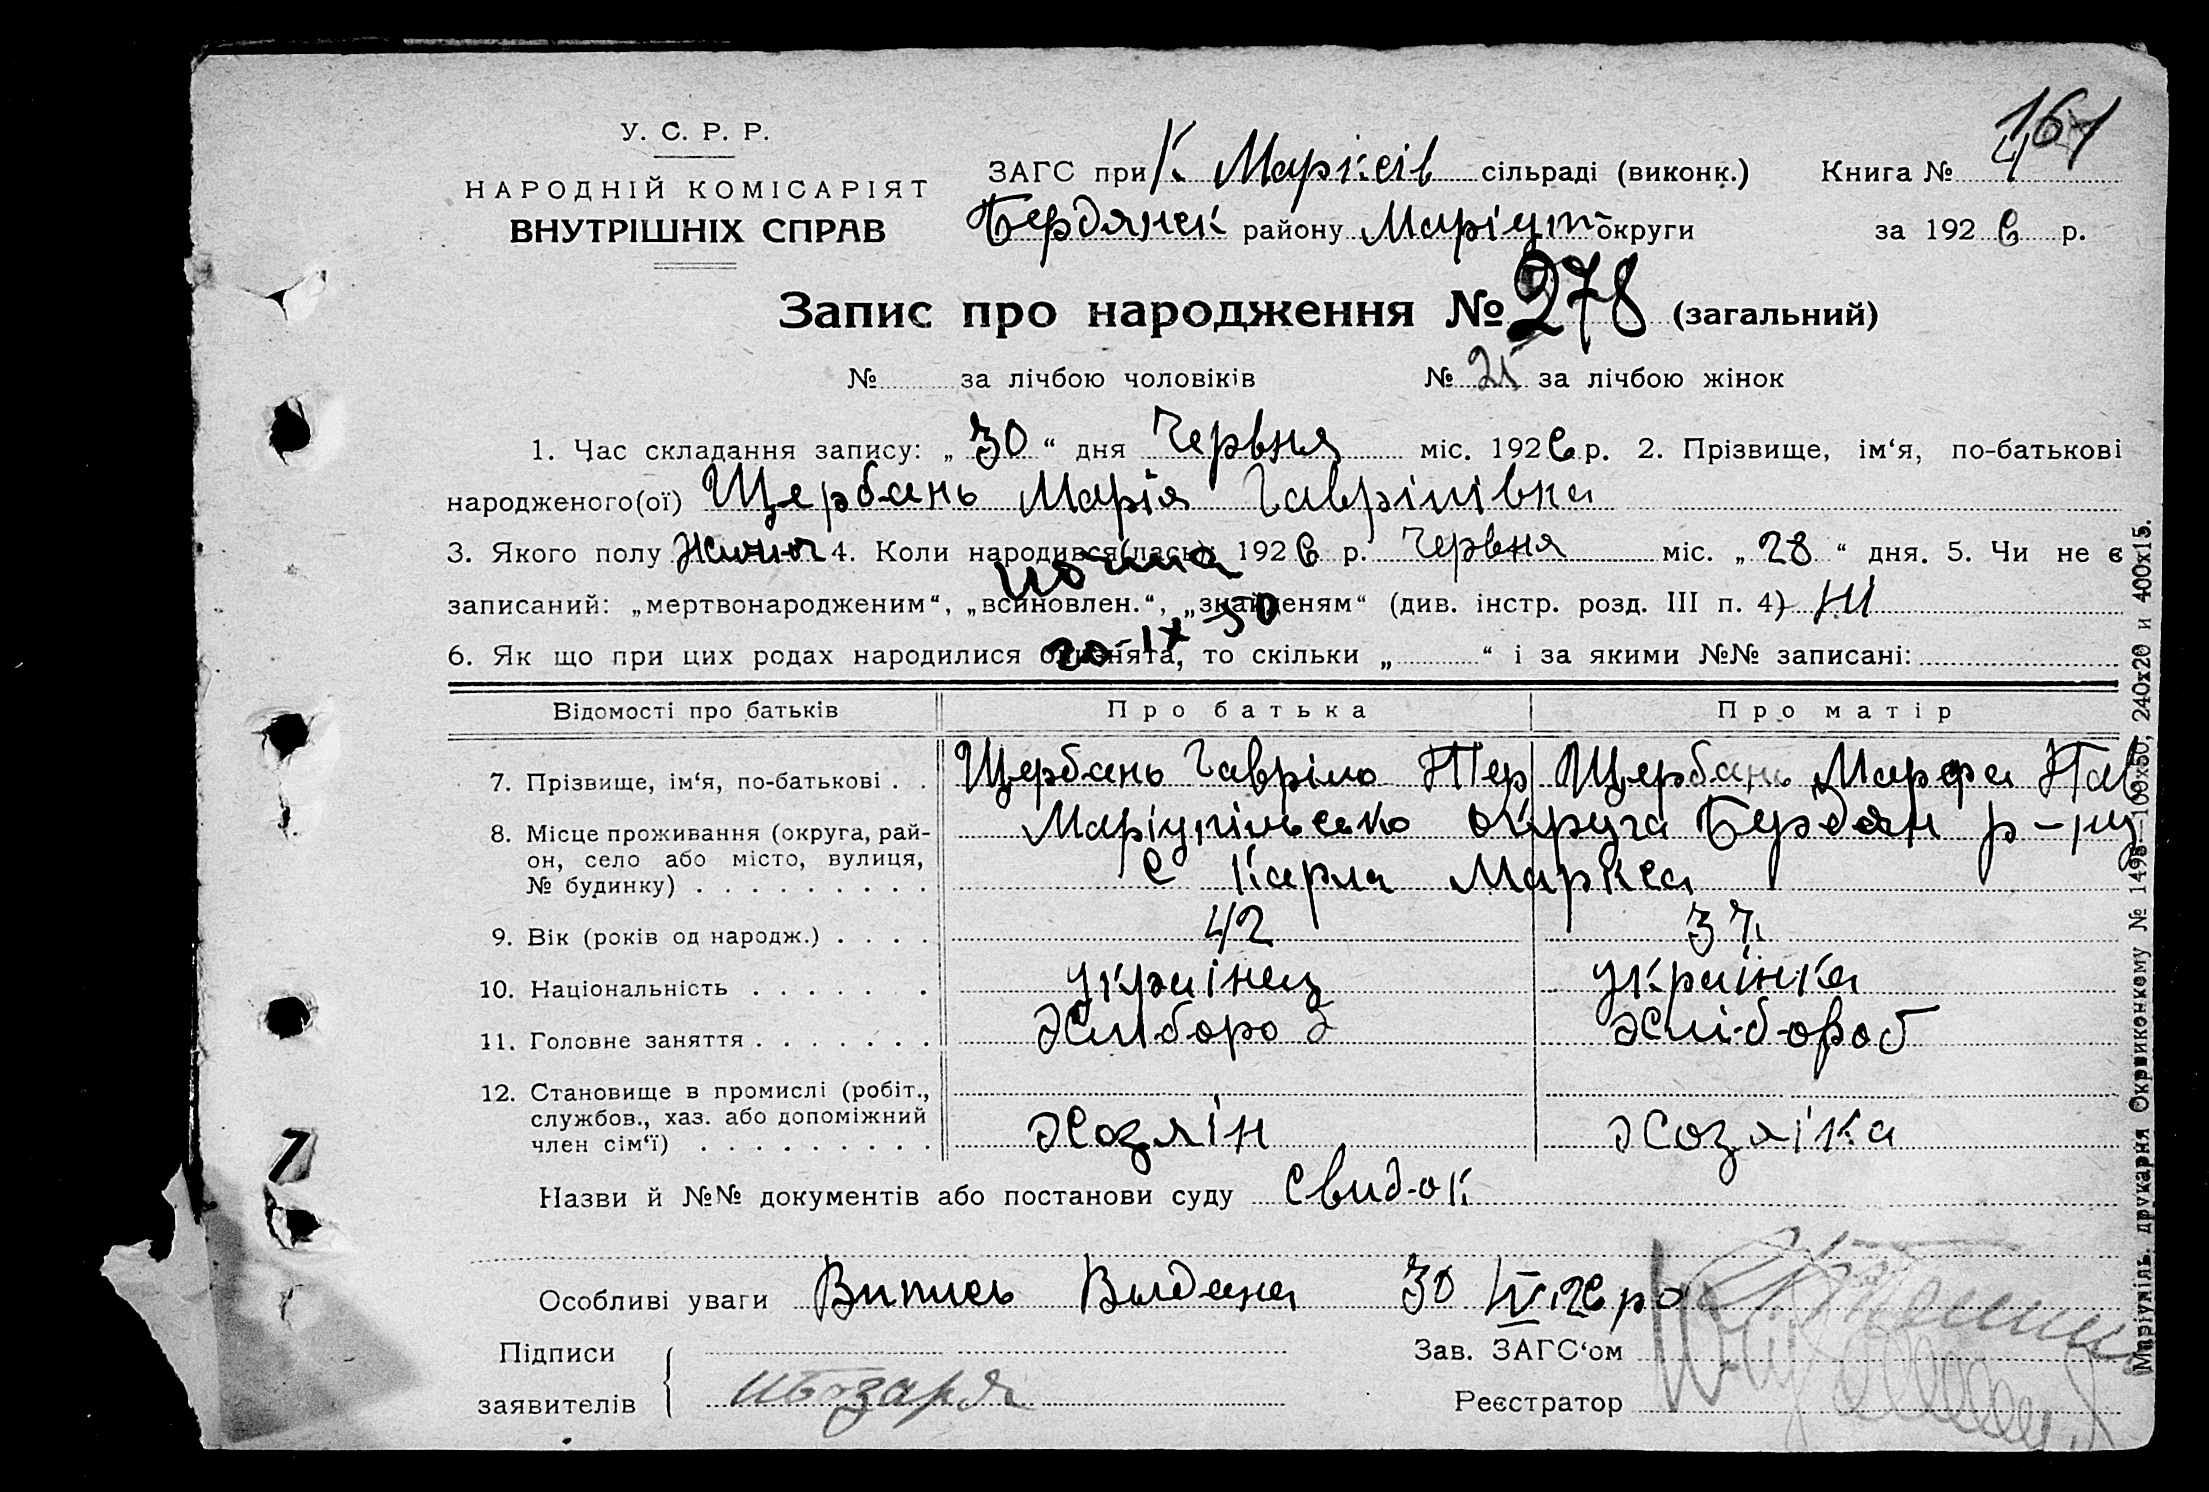 161
У. С. Р. Р.
НАРОДНІЙ КОМІСАРІЯТ
ВНУТРІШНІХ СПРАВ
ЗАГС при К Марксів сільраді (виконк.) Книга №
Бердянск району Маріуп округи за 192 6 р.
Запис про народження № 278 (загальний)
№ за лічбою чоловіків № 21 за лічбою жінок
1. Час складання запису: „ 30 “ дня Червня міс. 192 6 р. 2. Прізвище, ім‘я, по-батькові
народженого(ої) Щербань Марія Гаврілівна
3. Якого полу 4. Коли народився(лась): 192 6 р. Червня міс. „ 28 “ дня. 5. Чи не є
записаний: „мертвонародженим“, „всиновлен.“, „знайденям“ (див. інстр. розд. III п. 4) Ні
20-IX-50
6. Як що при цих родах народилися близнята, то скільки „ “ і за якими №№ записані:
Відомості про батьків Про батька Про матір
7. Прізвище, ім‘я, по-батькові . . Щербань Гавріло Пер Щербань Марфа Пав
8. Місце проживання (округа, рай-
он, село або місто, вулиця,
№ будинку) . . . . . . . . .
Маріупільсько округа Бердян р-ну
с Карла Маркса
9. Вік (років од народж.) . . . . 42 37
10. Національність . . . . . . українец українка
11. Головне заняття . . . . . . . хліборо хлібороб
12. Становище в промислі (робіт.,
службов., хаз. або допоміжний
член сім‘ї) . . . . . . . . .
хозяїн хозяїка
Назви й №№ документів або постанови суду свидок
Особливі уваги Випись Видана 30 IV 26 р
Підписи
заявителів
Зав. ЗАГС‘ом
Реєстратор
Маріупіль. друкарня Окрвиконкому № 1498—100х50, 240х20 и 400х15.